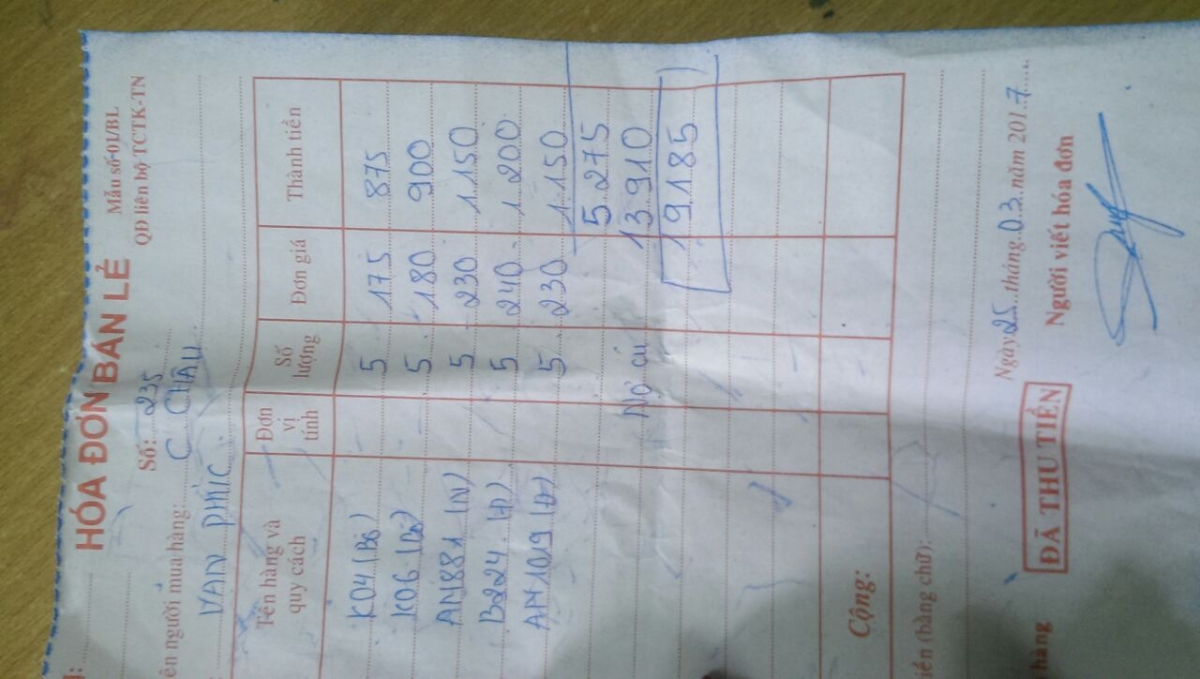 HÓA ĐƠN BÁN LẺ
Mẫu số 01/BL
QĐ liên bộ TCTK-TN
Số: 235
ên người mua hàng: C CHÂU
VẠN PHÚC
Tên hàng và quy cách Đơn vị tính Số lượng Đơn giá Thành tiền
K04 5 175 875
K06 5 180 900
AN881 (N) 5 230 1.150
B224 (Đ) 5 240 1.200
AN1019 (Đ) 5 230 1.150
5.275
Nợ cũ 13.910
19.185
Cộng:
iền (bằng chữ):
Ngày 25 tháng 03 năm 2017
hàng ĐÃ THU TIỀN Người viết hóa đơn